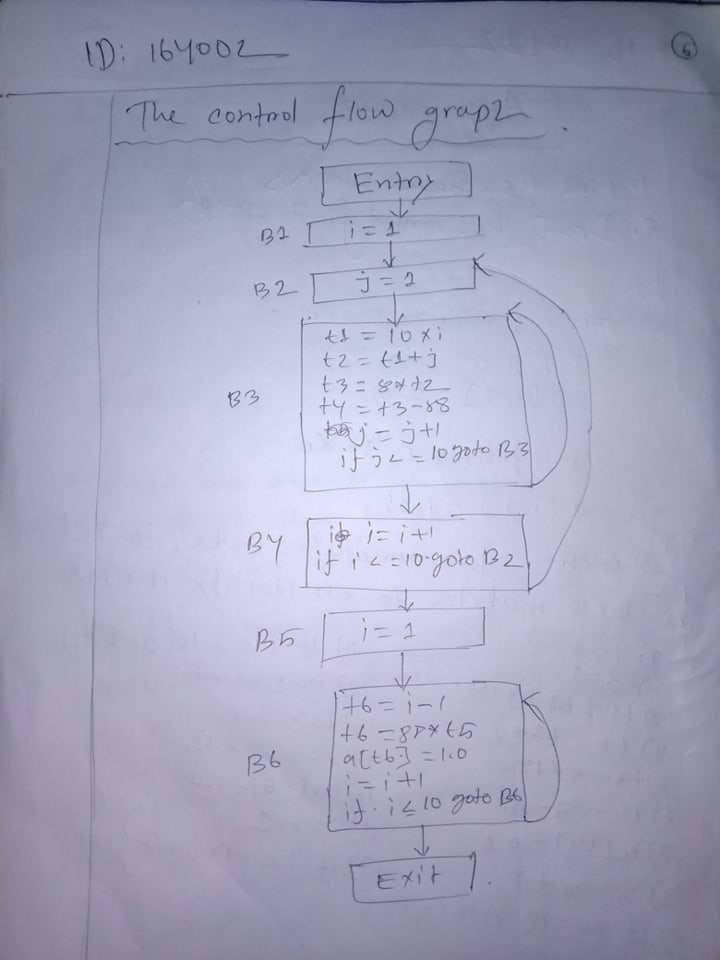 ID: 164002
6
The control flow graph.
Entry
B1 i = 1
B2 j = 1
B3
t1 = 10 * i
t2 = t1 + j
t3 = 8 * t2
t4 = t3 - 88
j = j + 1
if j < = 10 goto B3
B4
i = i + 1
if i < = 10 goto B2
B5 i = 1
B6
t6 = i - 1
t6 = 88 * t5
a[t6] = 1.0
i = i + 1
if i ≤ 10 goto B6
Exit